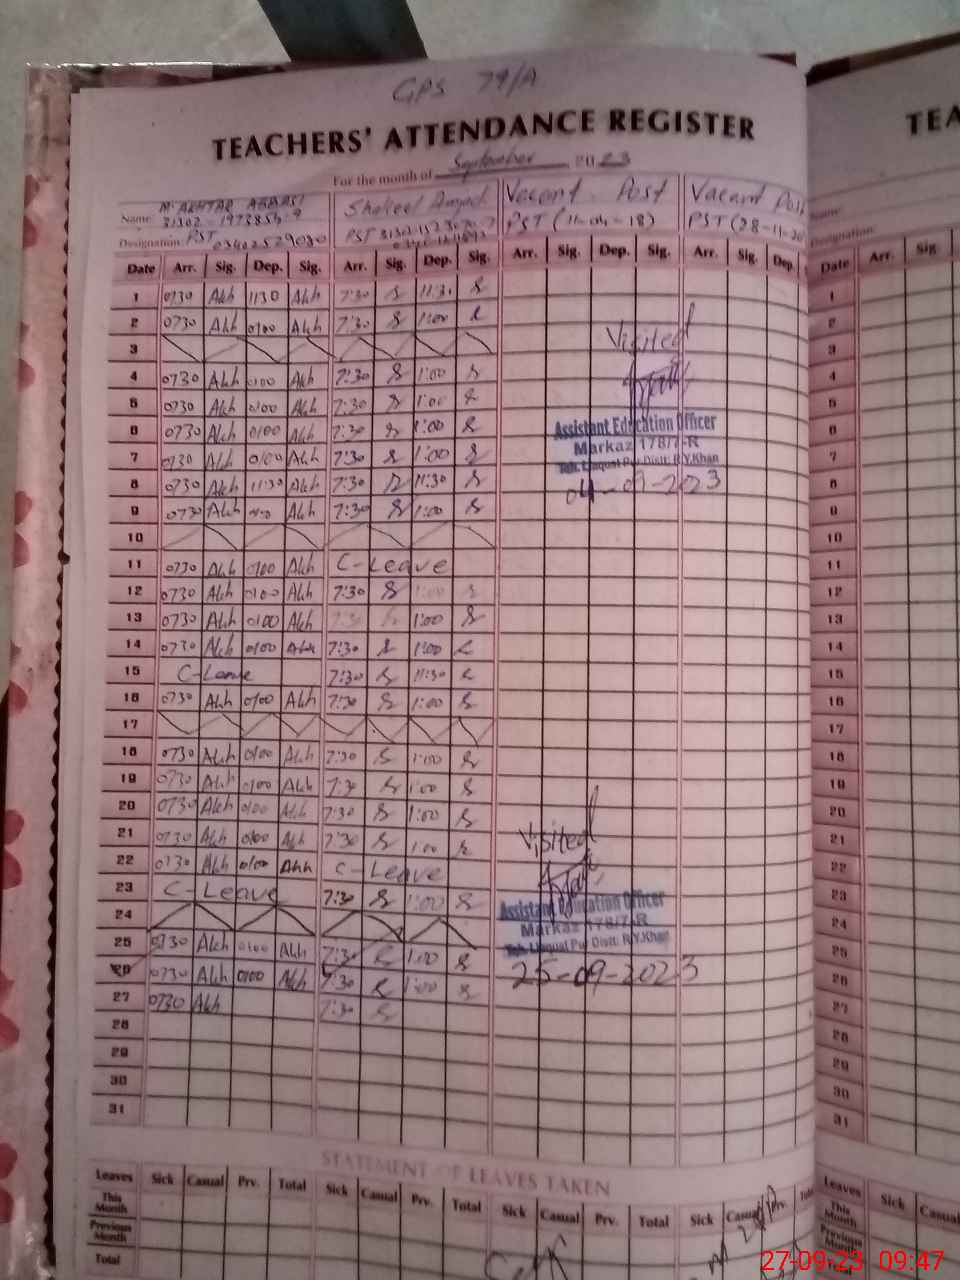 GPS 79/A
TEACHERS' ATTENDANCE REGISTER TEA
For the month of September 2023
Name: M AKHTAR ABBASI Shakeel Amjad Vacant Post Vacant Post Name:
31302-1973854-9 PST (11-04-18) PST (28-11-20
Designation: PST 03402529080 PST Designation:
Date Arr. Sig. Dep. Sig. Arr. Sig. Dep. Sig. Arr. Sig. Dep. Sig. Arr. Sig. Dep. Date Arr. Sig
1 0730 Akh 1130 Akh 7:30 S 11:30 S 1
2 0730 Akh 0100 Akh 7:30 S 1:00 S 2
3 Visited 3
4 0730 Akh 0100 Akh 7:30 S 1:00 S 4
5 0730 Akh 0100 Akh 7:30 S 1:00 S Assistant Education Officer 5
6 0730 Akh 0100 Akh 7:30 S 1:00 S Markaz 178/7-R 6
7 0730 Akh 0100 Akh 7:30 S 1:00 S Teh. Liaquat Pur Distt: R.Y.Khan 7
8 0730 Akh 1130 Akh 7:30 S 11:30 S 04-09-2023 8
9 0730 Akh Akh 7:30 S 1:00 S 9
10 10
11 0730 Akh 0100 Akh C-Leave 11
12 0730 Akh 0100 Akh 7:30 S 1:00 S 12
13 0730 Akh 0100 Akh 7:30 S 1:00 S 13
14 0730 Akh 0100 Akh 7:30 S 1:00 S 14
15 C-Leave 7:30 S 11:30 S 15
16 0730 Akh 0100 Akh 7:30 S 1:00 S 16
17 17
18 0730 Akh 0100 Akh 7:30 S 1:00 S 18
19 0730 Akh 0100 Akh 7:30 S 1:00 S 19
20 0730 Akh 0100 Akh 7:30 S 1:00 S 20
21 0730 Akh 0100 Akh 7:30 S 1:00 S Visited 21
22 0730 Akh 0100 Akh C-Leave 22
23 C-Leave 7:30 S 1:00 S Assistant Education Officer 23
24 Markaz 178/7-R 24
25 0730 Akh 0100 Akh 7:30 S 1:00 S Teh. Liaquat Pur Distt: R.Y.Khan 25
26 0730 Akh 0100 Akh 7:30 S 1:00 S 25-09-2023 26
27 0730 Akh 7:30 S 27
28 28
29 29
30 30
31 31
STATEMENT OF LEAVES TAKEN
Leaves Sick Casual Prv. Total Sick Casual Prv. Total Sick Casual Prv. Total Sick Casual Prv. Leaves Sick Casual
This Month This Month
Previous Month Previous Month
Total Total
27-09-23 09:47